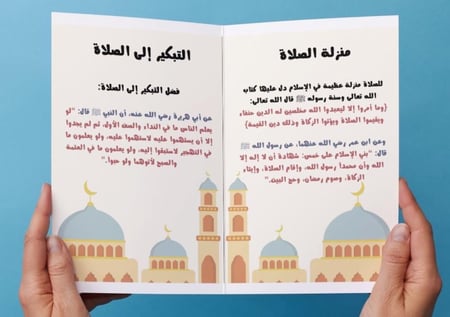 منزلة الصلاة
للصلاة منزلة عظيمة في الإسلام دل عليها كتاب
الله تعالى وسنة رسوله ﷺ قال الله تعالى:
(وما أمروا إلا ليعبدوا الله مخلصين له الدين حنفاء
ويقيموا الصلاة ويؤتوا الزكاة وذلك دين القيمة)
وعن ابن عمر رضي الله عنهما، عن رسول الله ﷺ
قال: "بني الإسلام على خمس: شهادة أن لا إله إلا
الله وأن محمدا رسول الله، وإقام الصلاة، وإيتاء
الزكاة، وصوم رمضان، وحج البيت."
التبكير إلى الصلاة
فضل التبكير إلى الصلاة:
عن أبي هريرة رضي الله عنه، أن النبي ﷺ قال: "لو
يعلم الناس ما في النداء والصف الأول، ثم لم يجدوا
إلا أن يستهموا عليه لاستهموا عليه، ولو يعلمون ما
في التهجير لاستبقوا إليه، ولو يعلمون ما في العتمة
والصبح لأتوهما ولو حبوا."